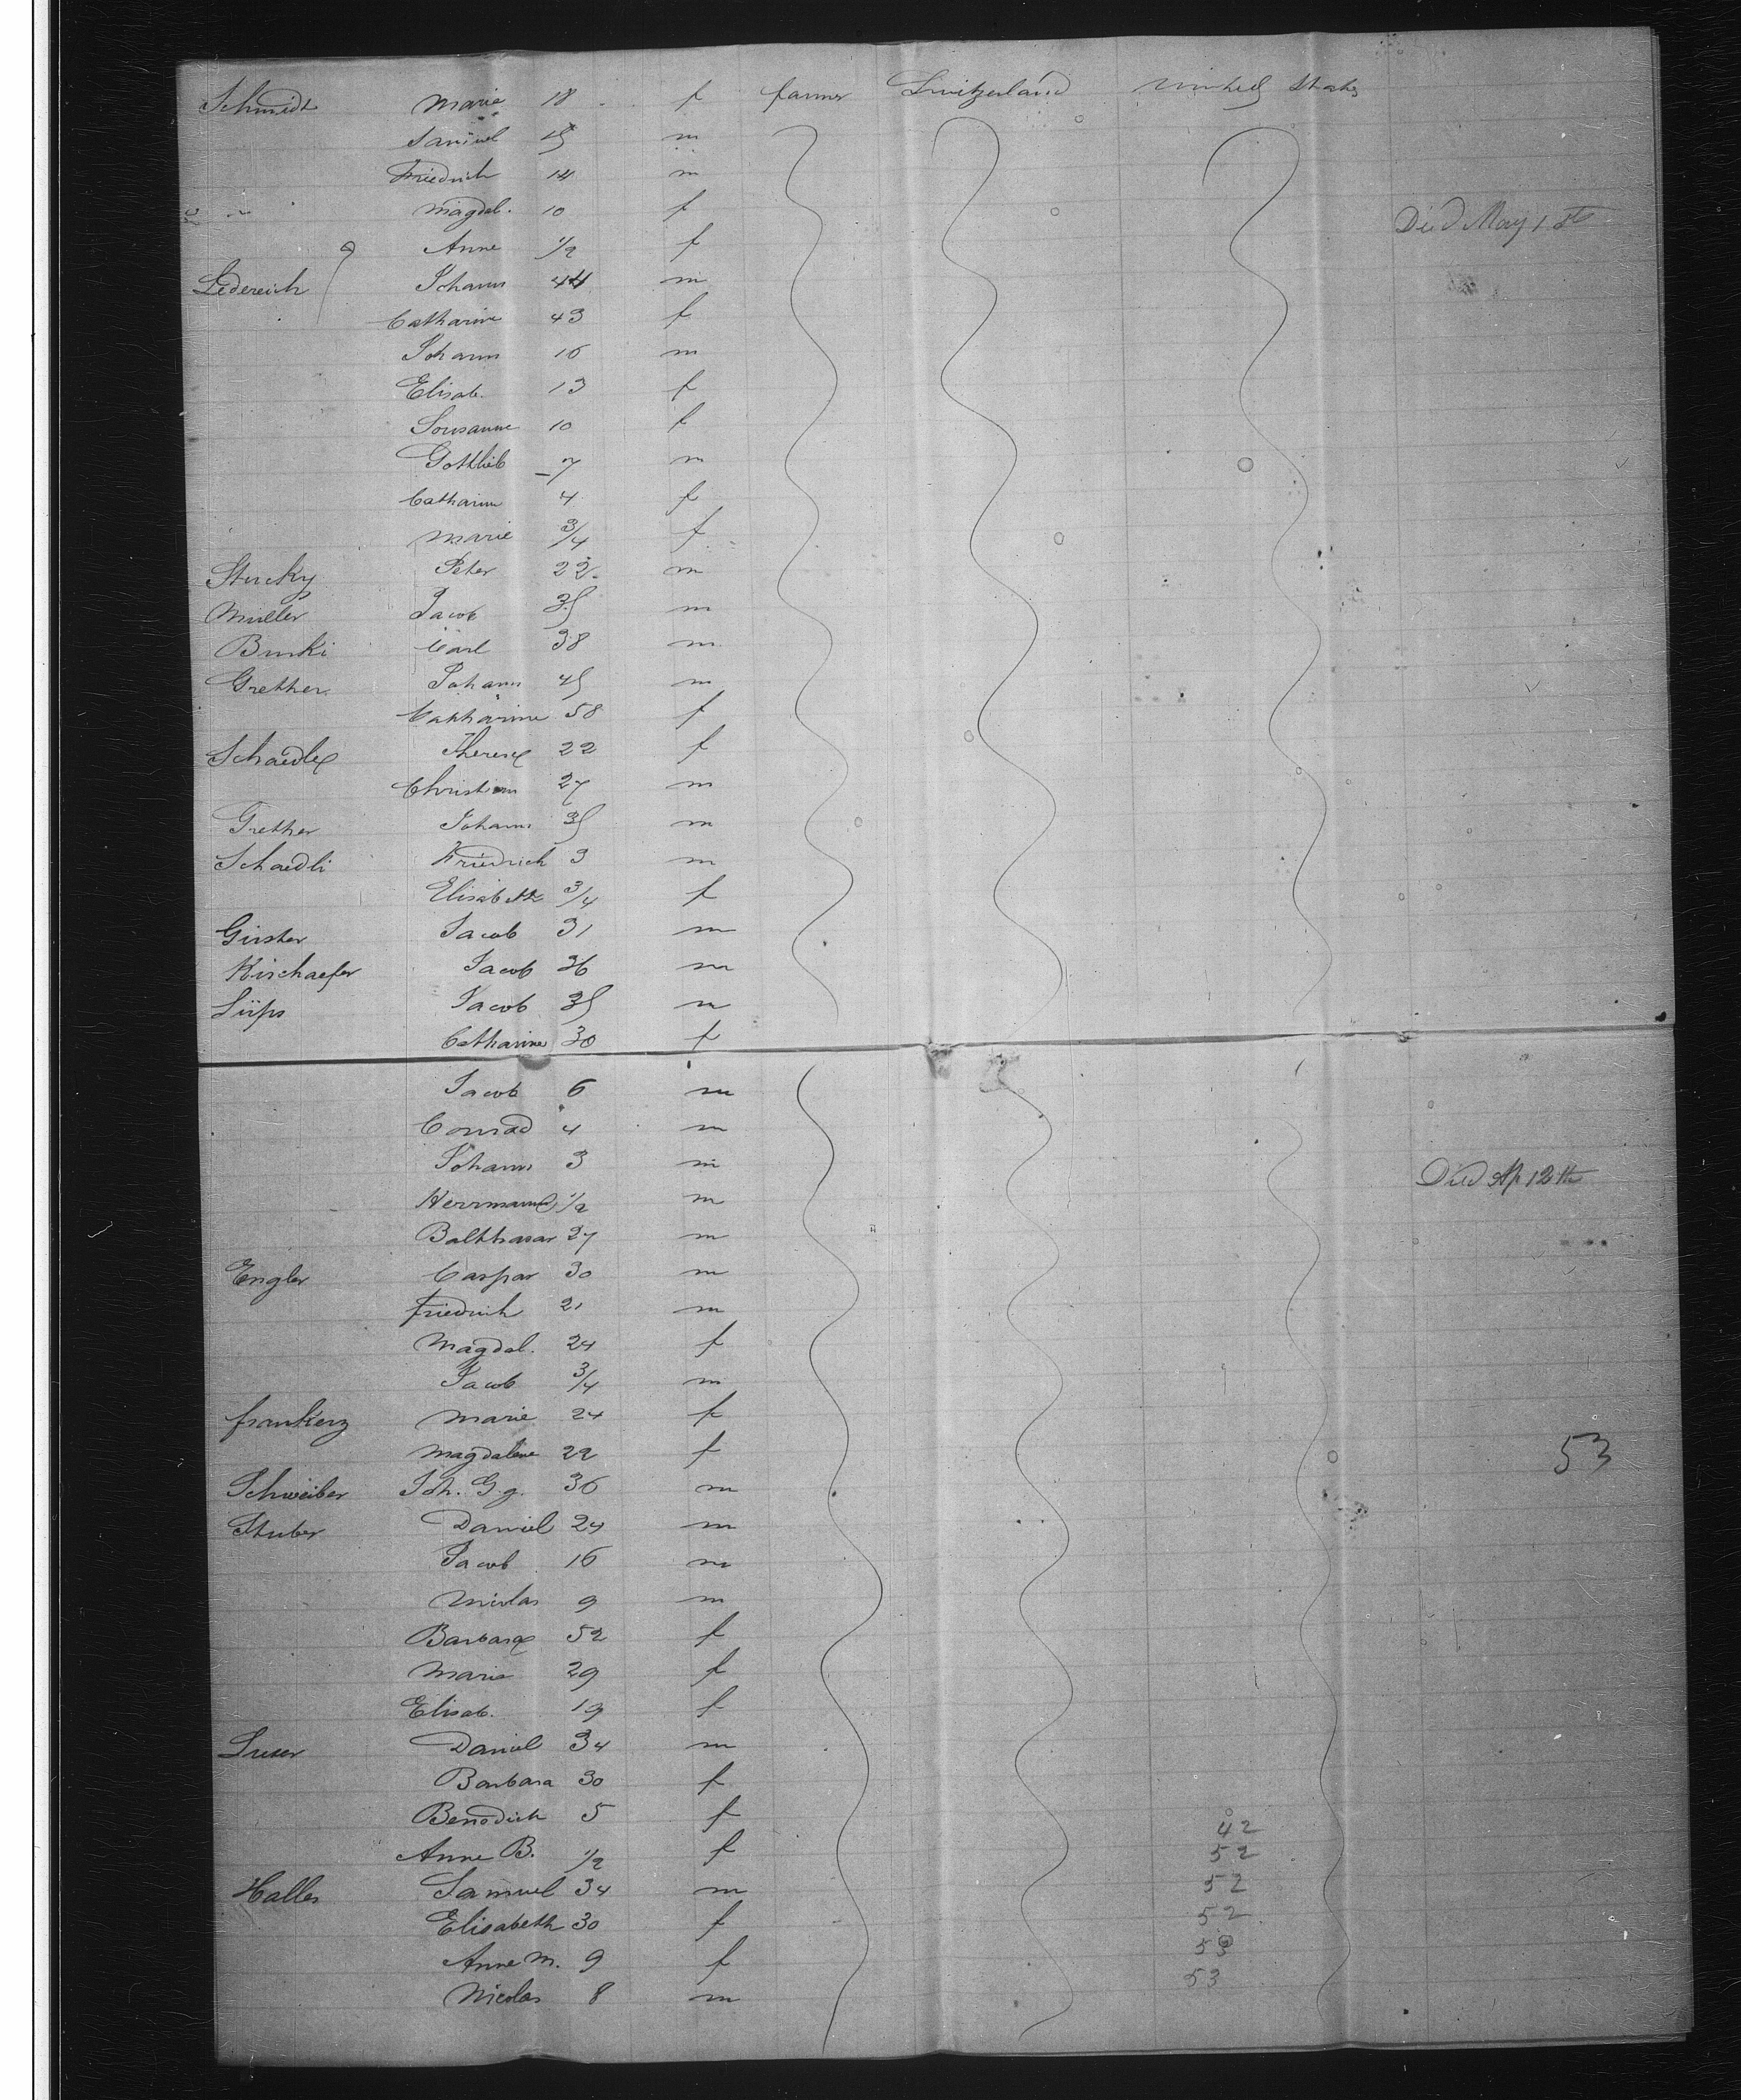 Schmidt Marie 18 f farmer Switzerland United States
Samuel 15 m
Friedrich 14 m
Magdal. 10 f
Anne 1/2 f Died May 1st
Ledereich Johann 44 m
Catharine 43 f
Johann 16 m
Elisab. 13 f
Sousanne 10 f
Gottlieb 7 m
Catharine 4 f
Marie 3/4 f
Stucky Peter 22 m
Muller Jacob 35 m
Burki Carl 38 m
Grether Johann 45 m
Catharine 58 f
Schaedle Therese 22 f
Christian 27 m
Grether Johann 35 m
Schaedli Friedrich 3 m
Elisabeth 3/4 f
Girster Jacob 31 m
Kirschaefer Jacob 36 m
Süps Jacob 35 m
Catharine 30 f
Jacob 6 m
Conrad 4 m
Johann 3 m
Herrmann 1/2 m Died Ap 12th
Balthasar 27 m
Engler Caspar 30 m
Friedrich 21 m
Magdal. 24 f
Jacob 3/4 m
Frankenz Marie 24 f
Magdalene 22 f 53
Schweiber Joh. G.g. 36 m
Stuber Daniel 24 m
Jacob 16 m
Nicolas 9 m
Barbara 52 f
Marie 29 f
Elisab. 19 f
Suser Daniel 34 m
Barbara 30 f
Benedich 5 f
42
Anne B. 1/2 f 52
Haller Samuel 34 m 52
Elisabeth 30 f 52
Anne M. 9 f 53
Nicolas 8 m 53